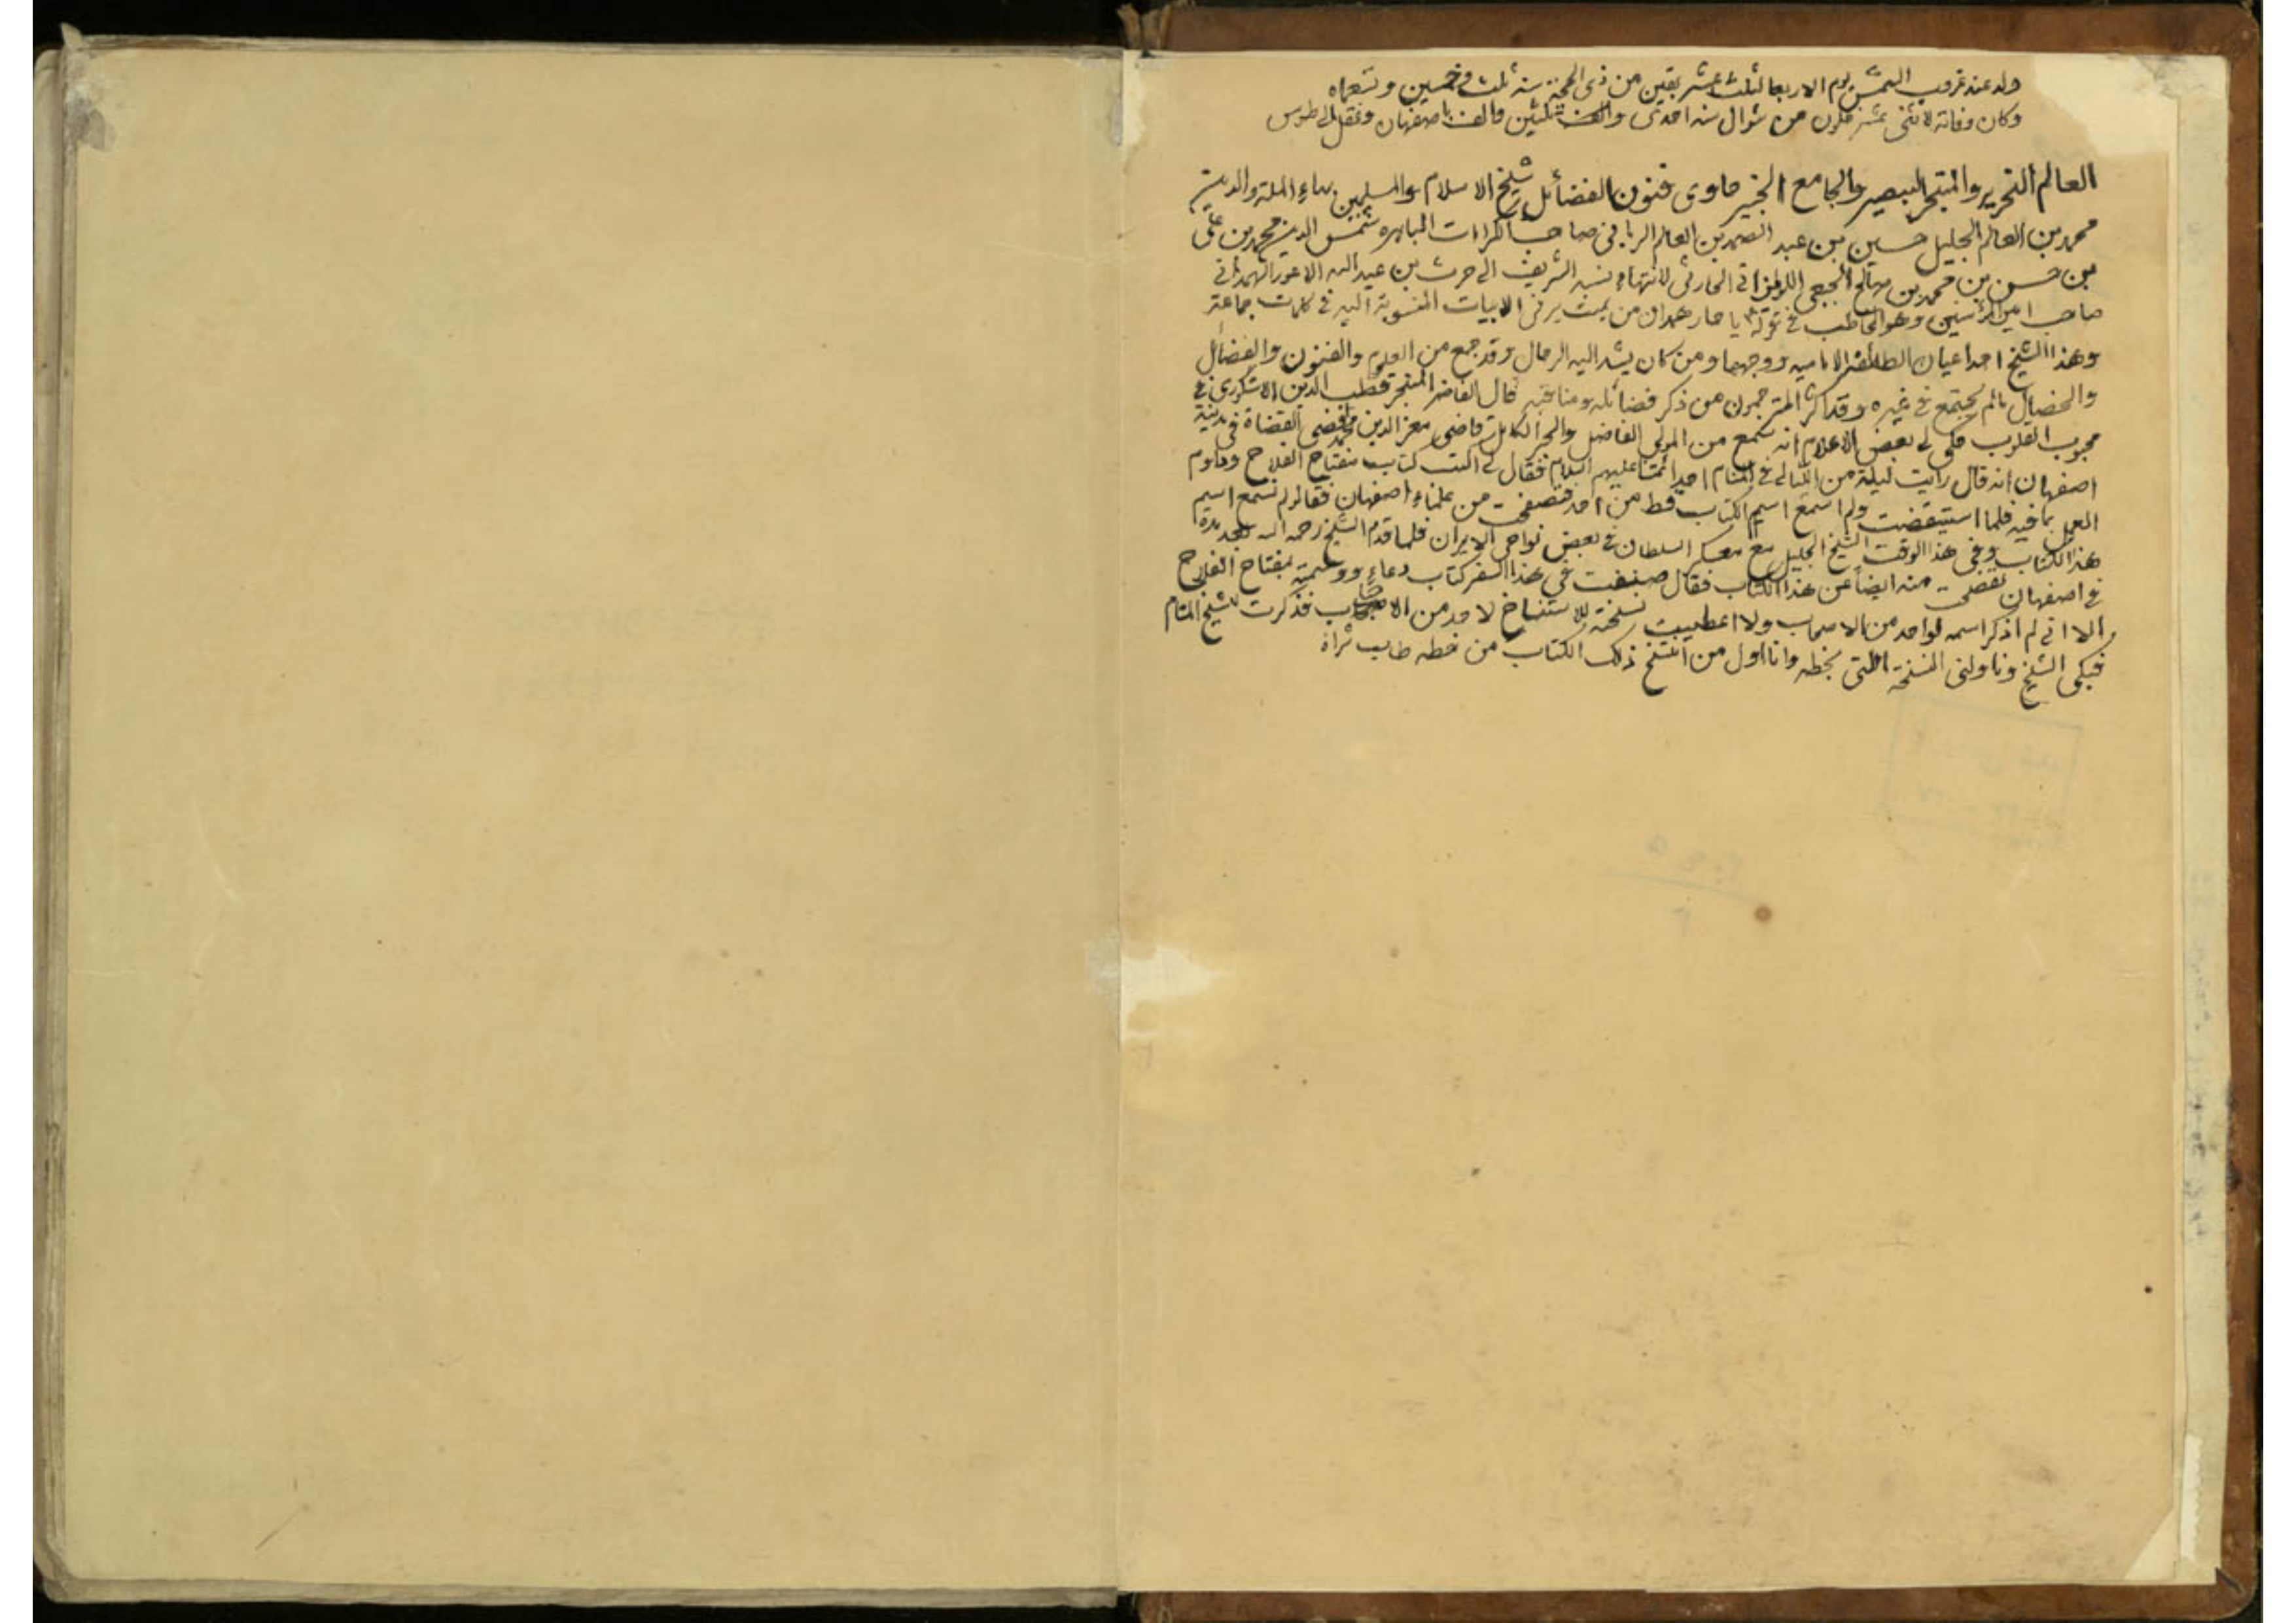 ولد عند غروب الشمس يوم الاربعا لثلث عشر بقين من ذى الحجة سنه ثلث و خمسين و تسعماه
وكان وفاته لاثنى عشر خلون من شوال سنه احدى و ثلثين والف باصفهان ونقل الى طوس
العالم النحرير والمتبحر البصير والجامع الخبير حاوى فنون الفضائل شيخ الاسلام والمسلمين بهاء الملة والدين
محمد بن العالم الجليل حسين بن عبد الصمد بن العالم الربانى صاحب الكرامات الباهره شمس الدين محمد بن على
بن حسن بن محمد بن صالح الجبعى اللويزانى الحارثى لانتهاء نسبه الشريف الى حرث بن عبد الله الاعور الهمدانى
صاحب امير المؤمنين وهو المخاطب فى قوله يا حار همدان من يمت يرنى الابيات المنسوبة اليه فى كلمات جماعة
وهذا الشيخ احد اعيان الطائفة الاماميه ووجهها ومن كان يشد اليه الرحال وقد جمع من العلوم والفنون والفضائل
والخصال ما لم يجتمع فى غيره وقد اكثر المترجمون من ذكر فضائله ومناقبه قال الفاضل المتبحر قطب الدين الاشكورى فى
محبوب القلوب حكى لى بعض الاعلام انه سمع من المولى الفاضل والحبر الكامل قاضى معز الدين محمد اقضى القضاة فى مدينة
اصفهان انه قال رايت ليلة من الليالى فى المنام احد ائمتنا عليهم السلام فقال لى اكتب كتاب مفتاح الفلاح وداوم
العمل بما فيه فلما استيقضت ولم اسمع اسم الكتاب قط من احد فتصفحت من علماء اصفهان فقالو لم نسمع اسم
هذا الكتاب وفى هذا الوقت الشيخ الجليل مع معسكر السلطان فى بعض نواحى الايران فلما قدم الشيخ رحمه الله بعد مدة
فى اصفهان تفصحت منه ايضاً عن هذا الكتاب فقال صنفت فى هذا السفر كتاب دعاء ووسمته بمفتاح الفلاح
الا انى لم اذكر اسمه لواحد من الاصحاب ولا اعطيت نسخته للاستنساخ لاحد من الاحباب فذكرت للشيخ المنام
فبكى الشيخ وناولنى النسخة التى بخطه وانا اول من انتسخ ذلك الكتاب من خطه طاب ثراه